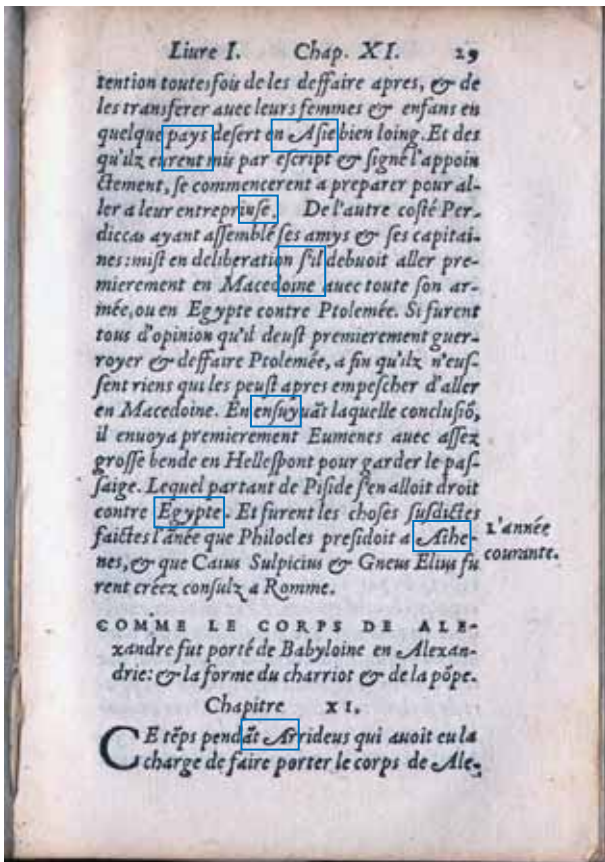 Liure I. Chap. XI. 29
tention toutesfois de les deffaire apres, & de
les transferer auec leurs femmes & enfans en
quelque pays desert en Asie bien loing. Et des
qu'ilz eurent mis par escript & signé l'appoin
ctement, se commencerent a preparer pour al-
ler a leur entrepriuse. De l'autre costé Per-
diccas ayant assemblé ses amys & ses capitai-
nes: mist en deliberation s'il debuoit aller pre-
mierement en Macedoine auec toute son ar-
mée, ou en Egypte contre Ptolemée. Si furent
tous d'opinion qu'il deust premierement guer-
royer & deffaire Ptolemée, a fin qu'ilz n'eus-
sent riens qui les peust apres empescher d'aller
en Macedoine. En ensuyuãt laquelle conclusiõ,
il enuoya premierement Eumenes auec assez
grosse bende en Hellespont pour garder le pas-
saige. Lequel partant de Piside s'en alloit droit
contre Egypte. Et furent les choses susdictes
faictes l'ãnée que Philocles presidoit a Athe-
nes, & que Caius Sulpicius & Gneus Elius fu
rent créez consulz a Romme.
L'année
courante.
COMME LE CORPS DE ALE-
xandre fut porté de Babyloine en Alexan-
drie: & la forme du charriot & de la põpe.
Chapitre XI.
CE tẽps pendãt Arrideus qui auoit eu la
charge de faire porter le corps de Ale-